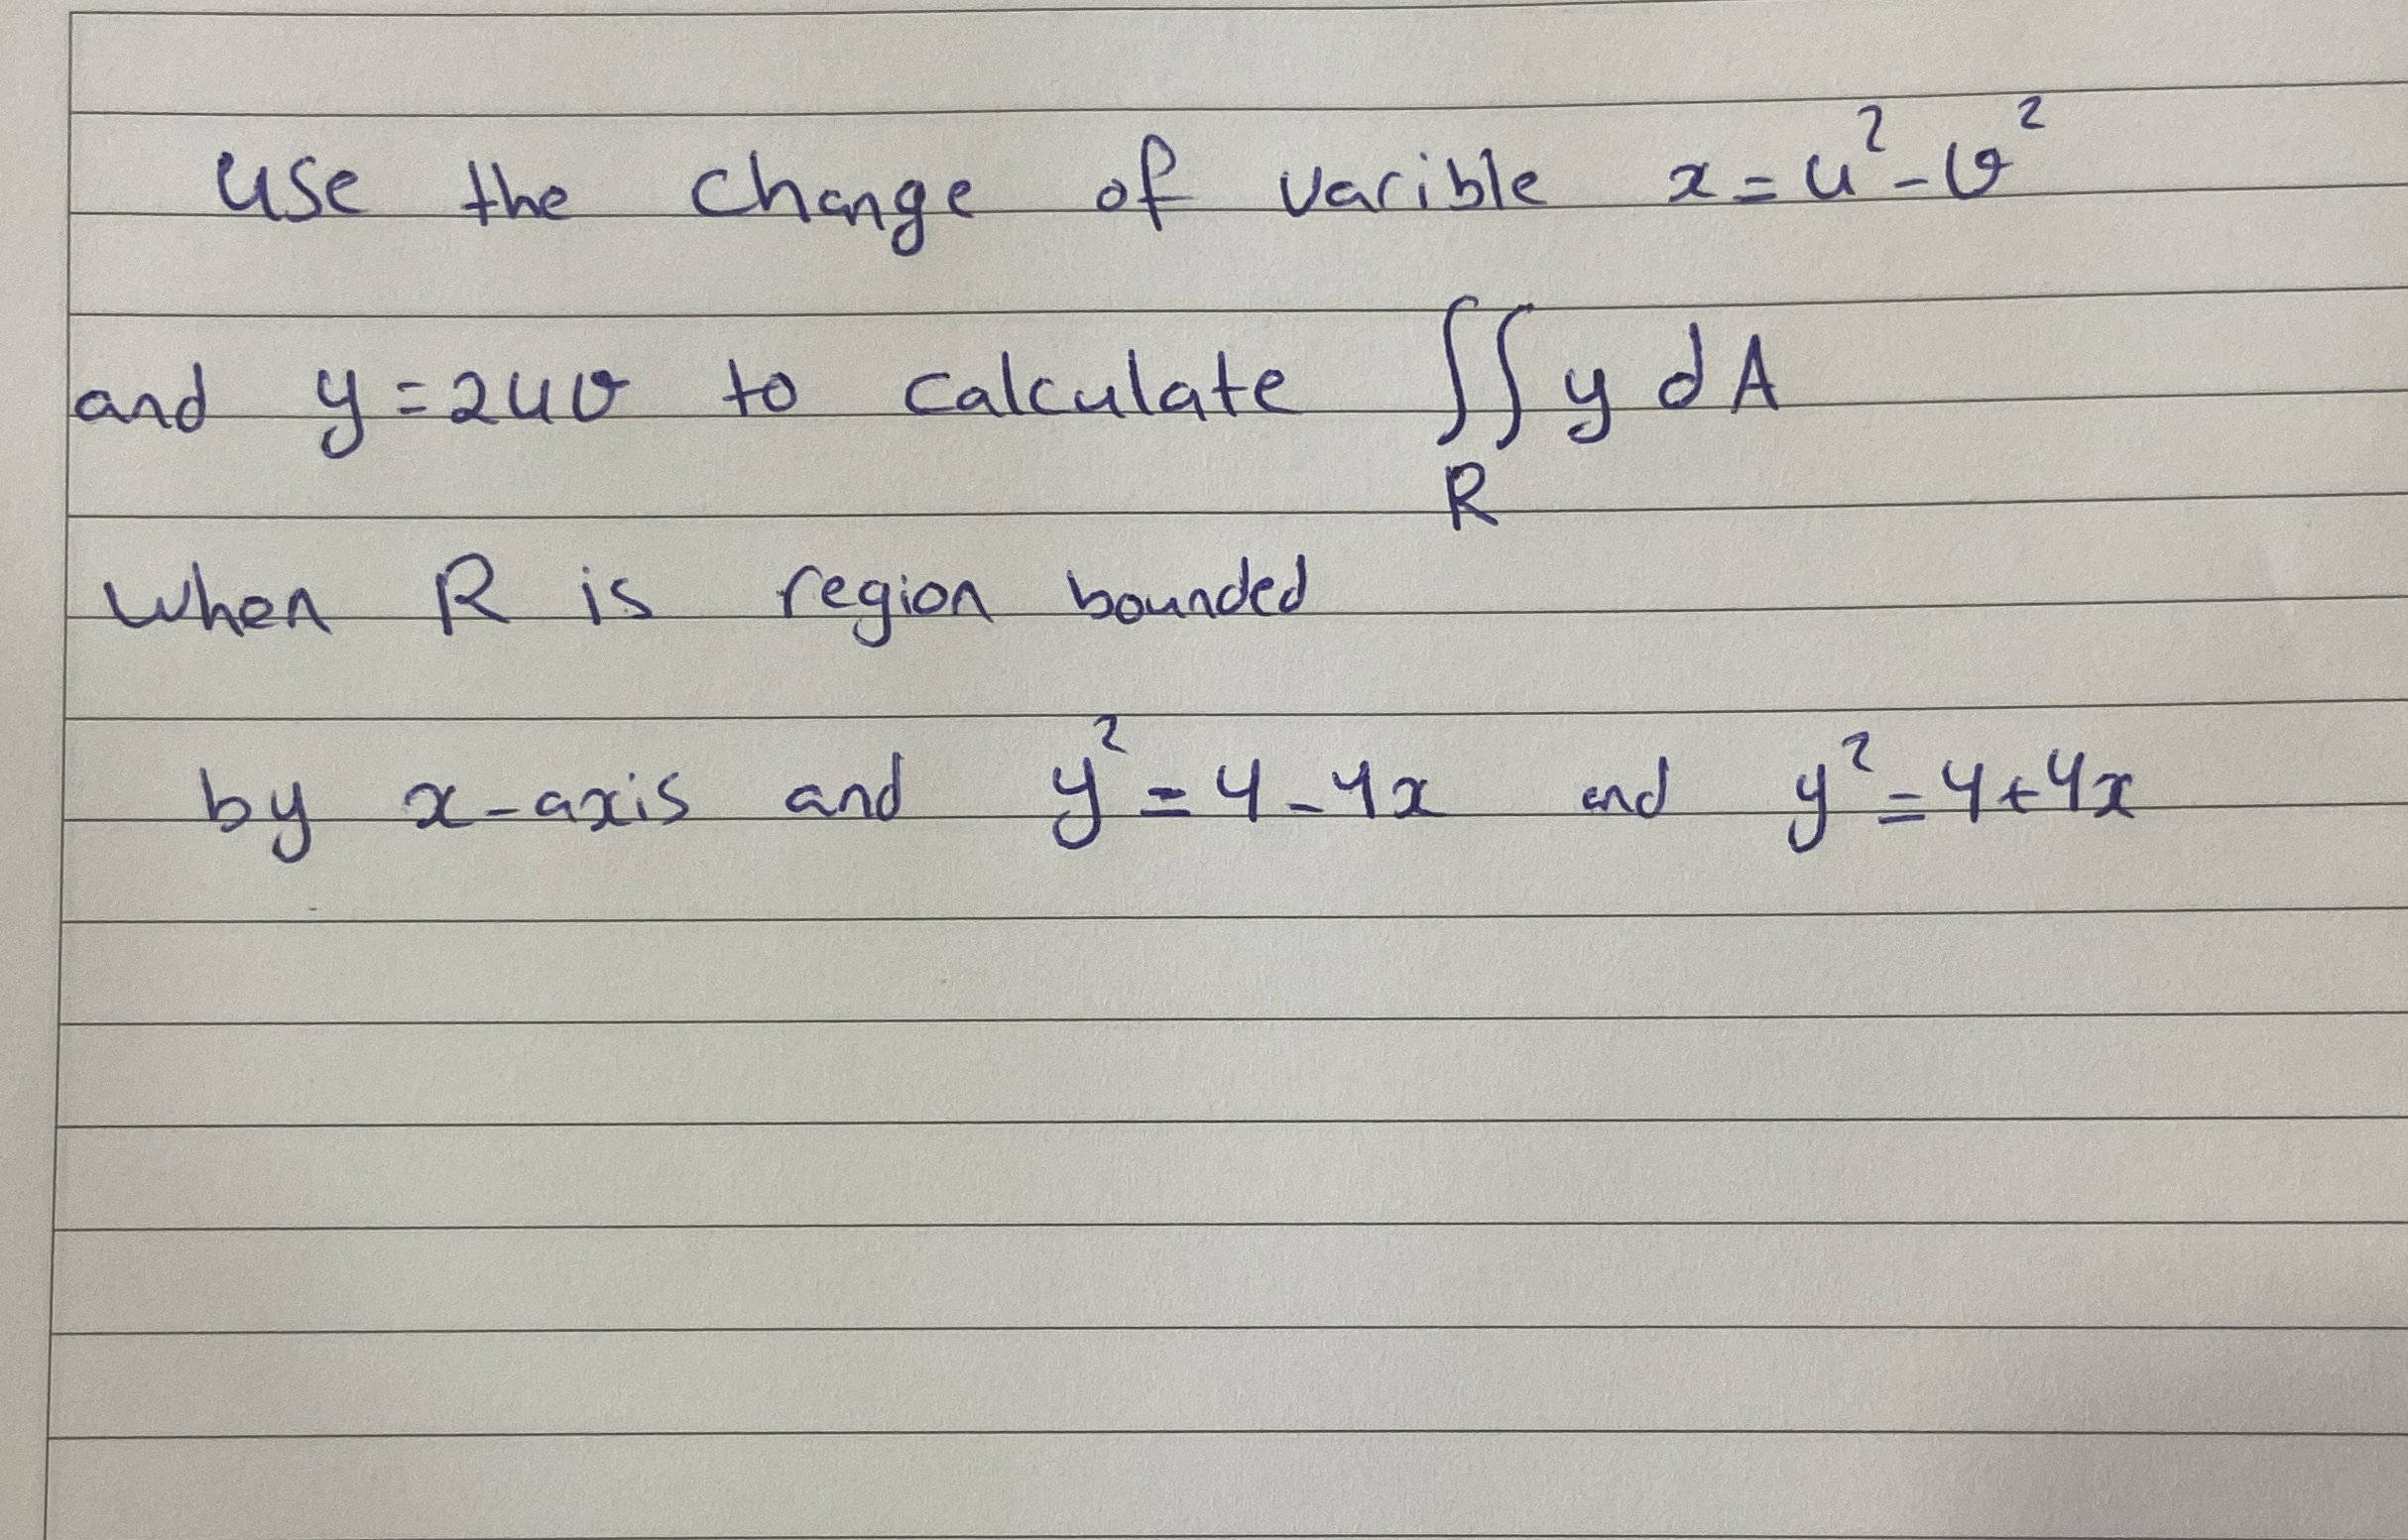 Use the change of varible x = u² - v²
and y = 2uv to calculate ∬ y dA
R
when R is region bounded
by x-axis and y² = 4 - 4x and y² = 4 + 4x